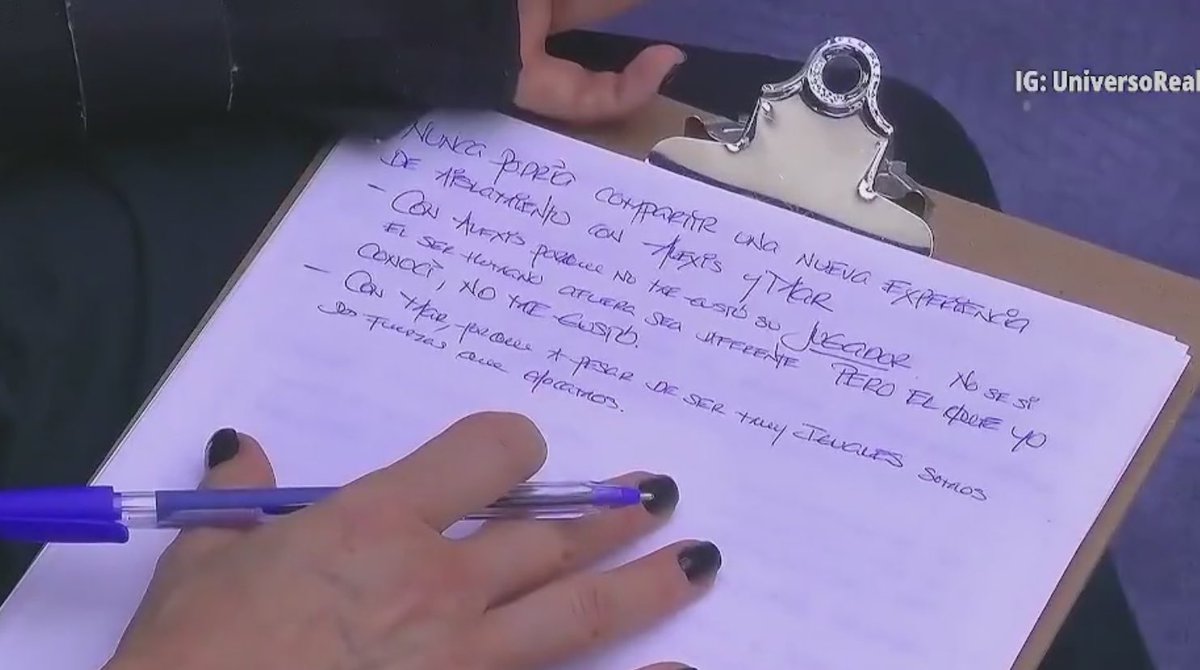 IG: UniversoReal
NUNCA PODRÍA COMPARTIR UNA NUEVA EXPERIENCIA
DE AISLAMIENTO CON ALEXIS Y MAR
- CON ALEXIS PORQUE NO ME GUSTÓ SU JUGADOR. NO SE SI
EL SER HUMANO AFUERA SEA DIFERENTE PERO EL QUE YO
CONOCÍ, NO ME GUSTÓ.
- CON MAR, PORQUE A PESAR DE SER MUY IGUALES SOMOS
DOS FUERZAS QUE CHOCAMOS.